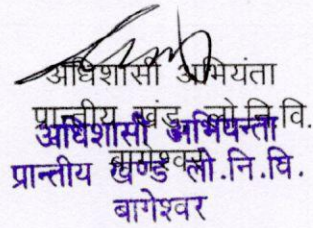 अधिशासी अभियंता
प्रान्तीय खंड लो.नि.वि.
बागेश्वर
अधिशासी अभियन्ता
प्रान्तीय खण्ड लो.नि.वि.
बागेश्वर